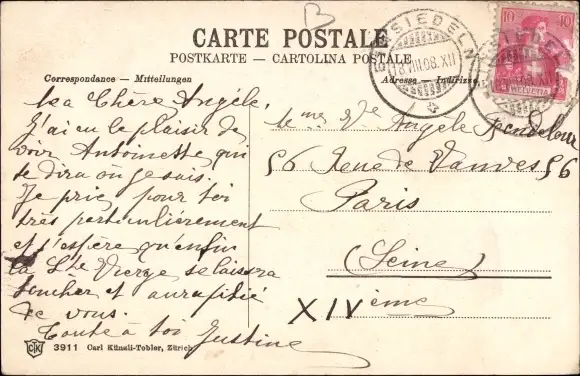 B
CARTE POSTALE
POSTKARTE — CARTOLINA POSTALE
Correspondance — Mitteilungen
Adresse — Indirizzo
EINSIEDELN
18.VIII.08.XII
10 10
HELVETIA
Ma Chère Angèle,
J'ai eu le plaisir de
voir Antoinette qui
te dira où je suis.
Je prie pour toi
très particulièrement
et j'espère qu'enfin
la Ste Vierge se laissera
toucher et aura pitié
de vous.
Toute à toi Justine
Mme Vve Angèle
56 Rue de Vanves 56
Paris
(Seine)
XIVème
3911 Carl Künzli-Tobler, Zürich